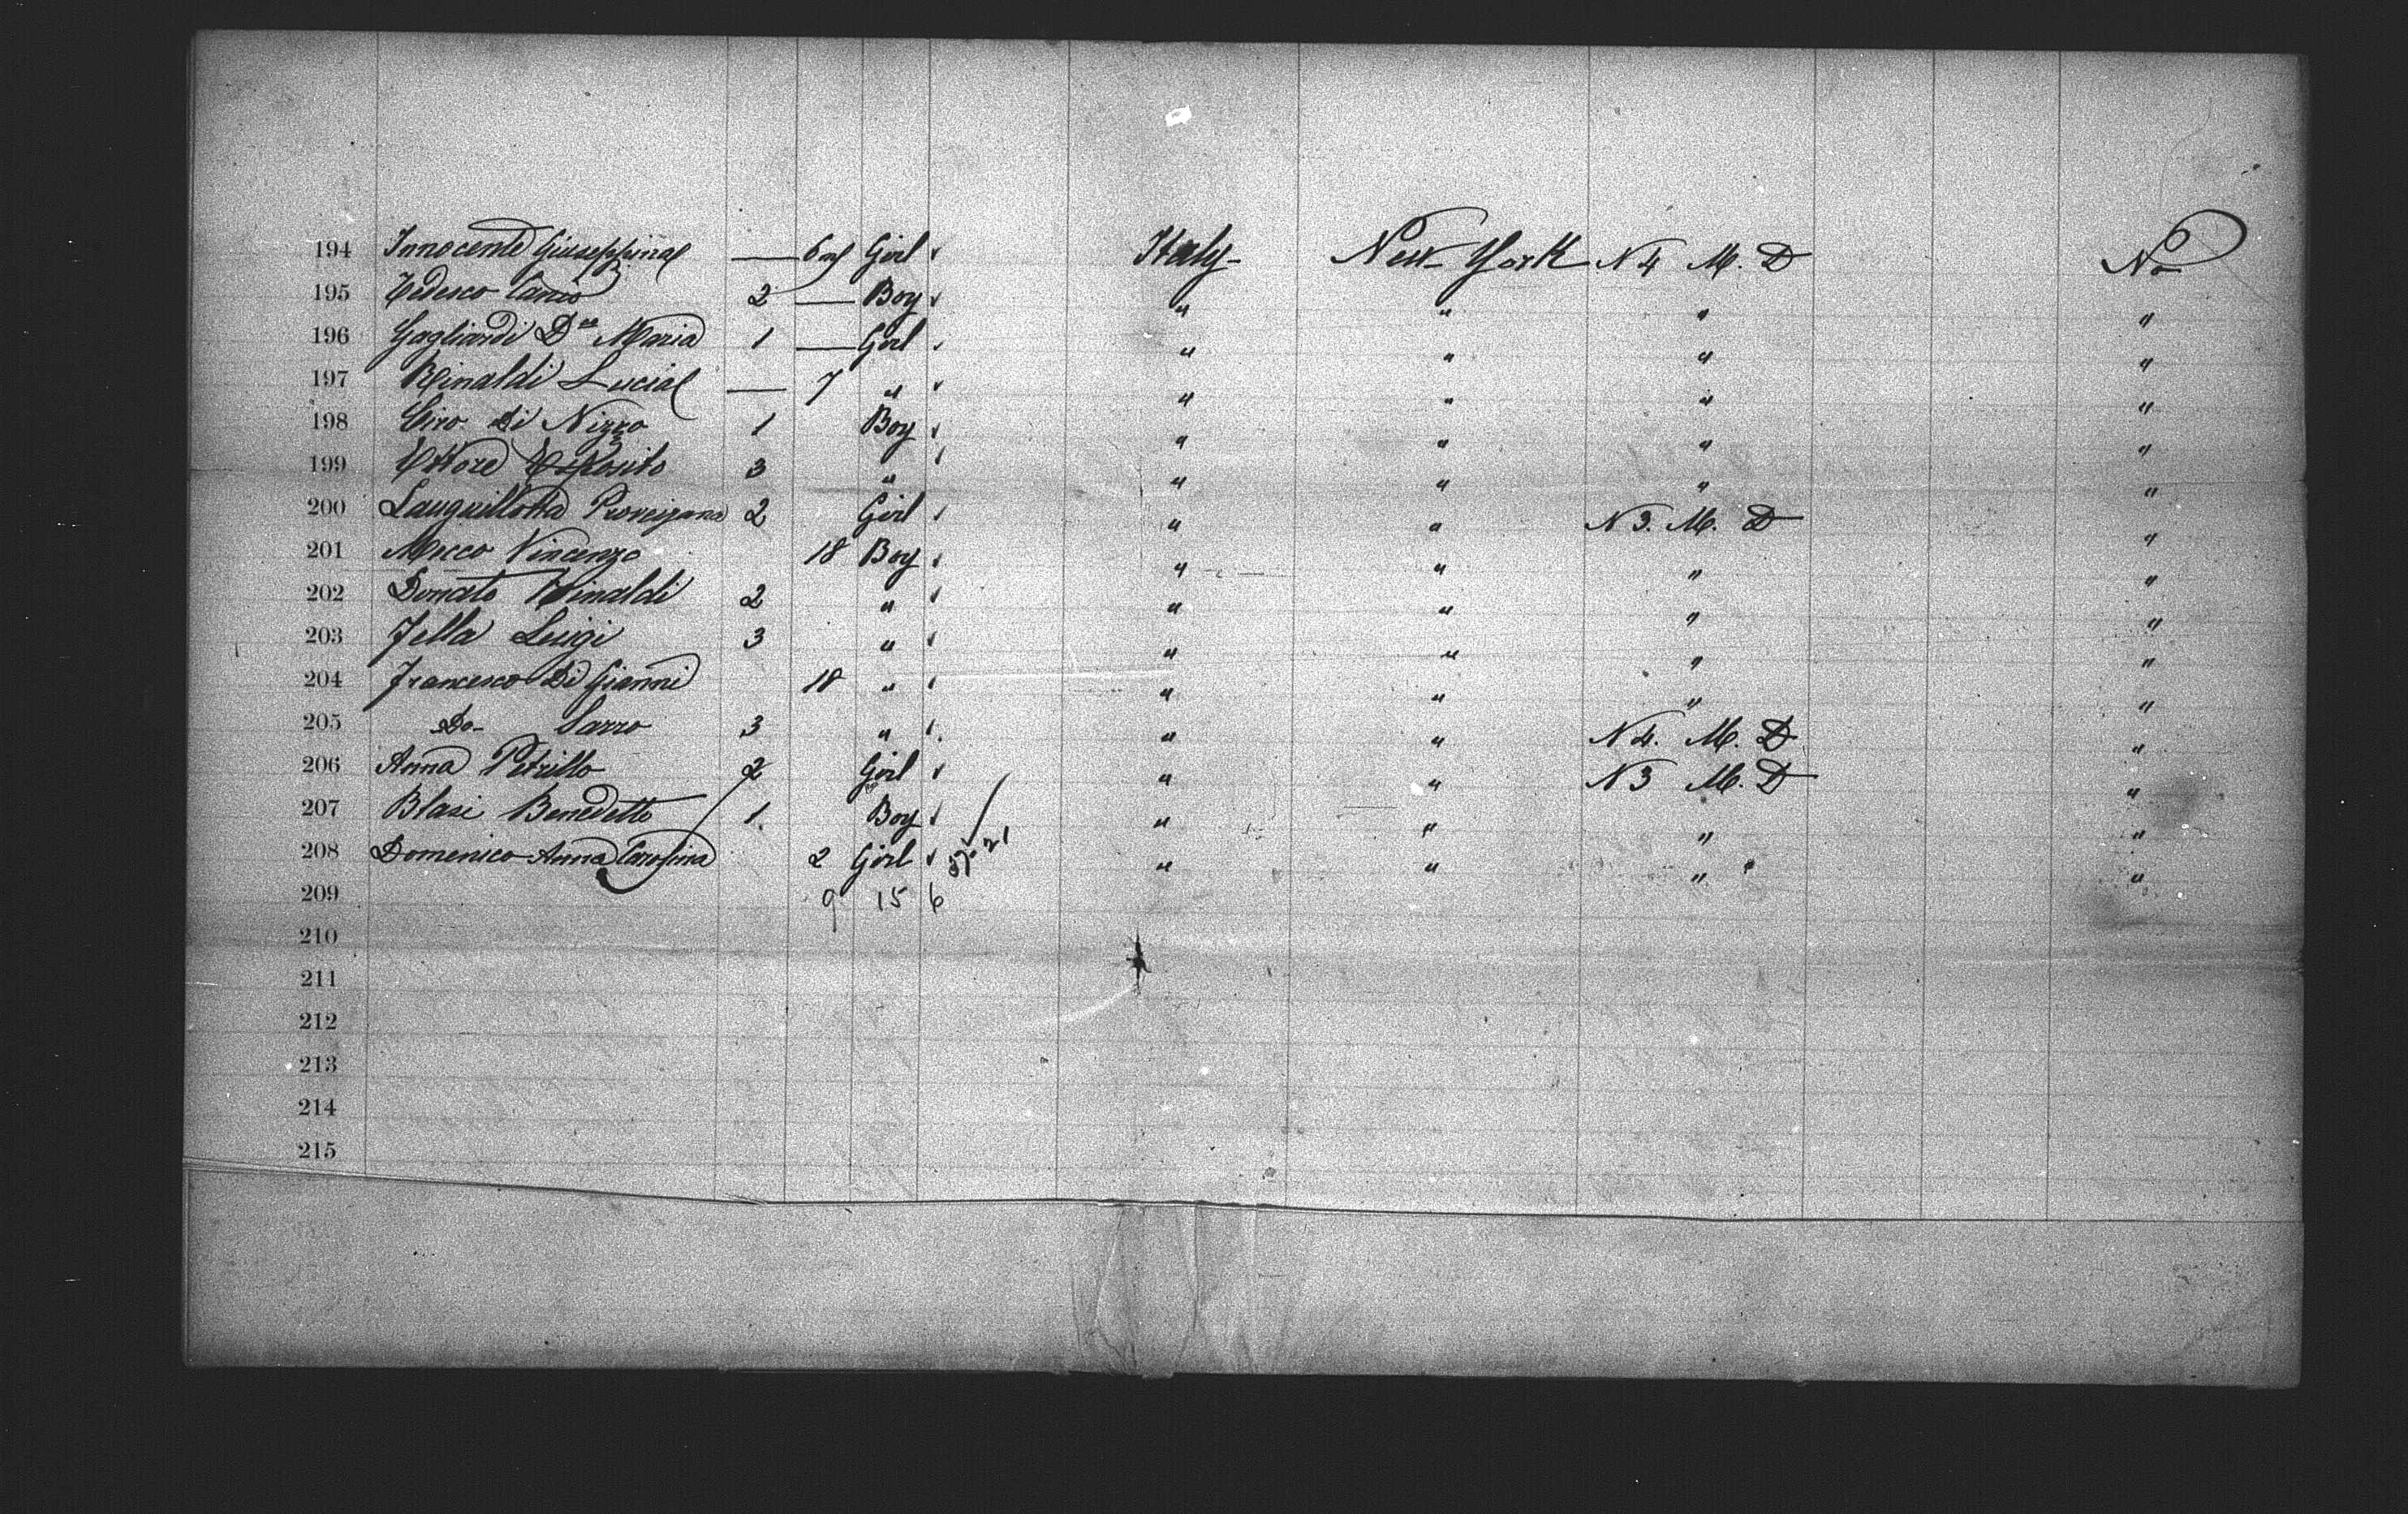 194 Innocente Giuseppina — 6 m Girl ✓ Italy New York N 4 M. D No
195 Tedesco Canio 2 — Boy ✓ " " " "
196 Gagliardi Maria 1 — Girl ✓ " " " "
197 Rinaldi Lucia — 7 " ✓ " " " "
198 Ciro di Nizzo 1 Boy ✓ " " " "
199 Ettore Esposito 3 " ✓ " " " "
200 2 Girl ✓ " " N 3. M. D "
201 Mecco Vincenzo 18 Boy ✓ " " " "
202 Donato Rinaldi 2 " ✓ " " " "
203 Jella Luigi 3 " ✓ " " " "
204 Francesco Di Gianni 18 " ✓ " " " "
205 Do- Sarro 3 " ✓ " " N 4. M. D "
206 Anna Petrillo 2 Girl ✓ " " N 3 M. D "
207 Blasi Benedetto 1 Boy ✓ " " " "
208 Domenico Anna Carolina 2 Girl ✓ " " " "
209 9 15 6
210
211
212
213
214
215